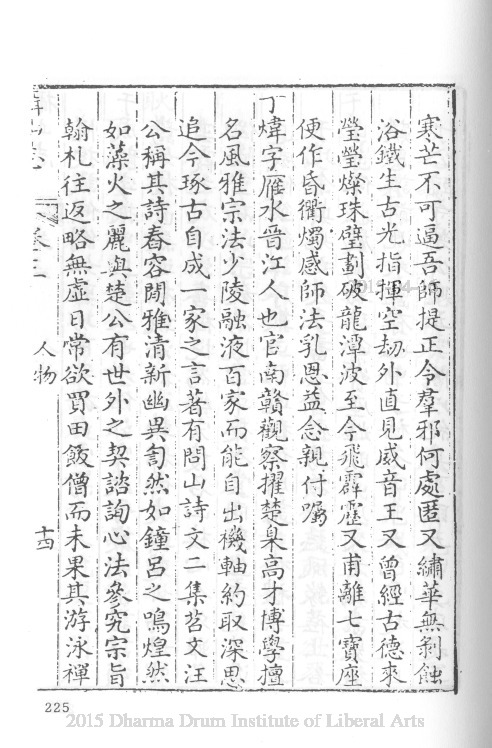 寒芒不可逼吾師提正令羣邪何處匿又繡華無剝蝕
浴鐵生古光指揮空劫外直見威音王又曾經古德來
瑩瑩燦珠璧劃破龍潭波至今飛霹靂又甫離七寶座
便作昏衢燭感師法乳恩益念親付囑
丁煒字雁水晉江人也官南贛觀察擢楚臬高才博學擅
名風雅宗法少陵融液百家而能自出機軸約取深思
追今琢古自成一家之言著有問山詩文二集苕文汪
公稱其詩舂容閒雅清新幽異訇然如鐘呂之鳴煌然
如藻火之麗與楚公有世外之契諮詢心法參究宗旨
翰札往返略無虛日常欲買田飯僧而未果其游泳禪
卷三
人物
十四
225
2015 Dharma Drum Institute of Liberal Arts